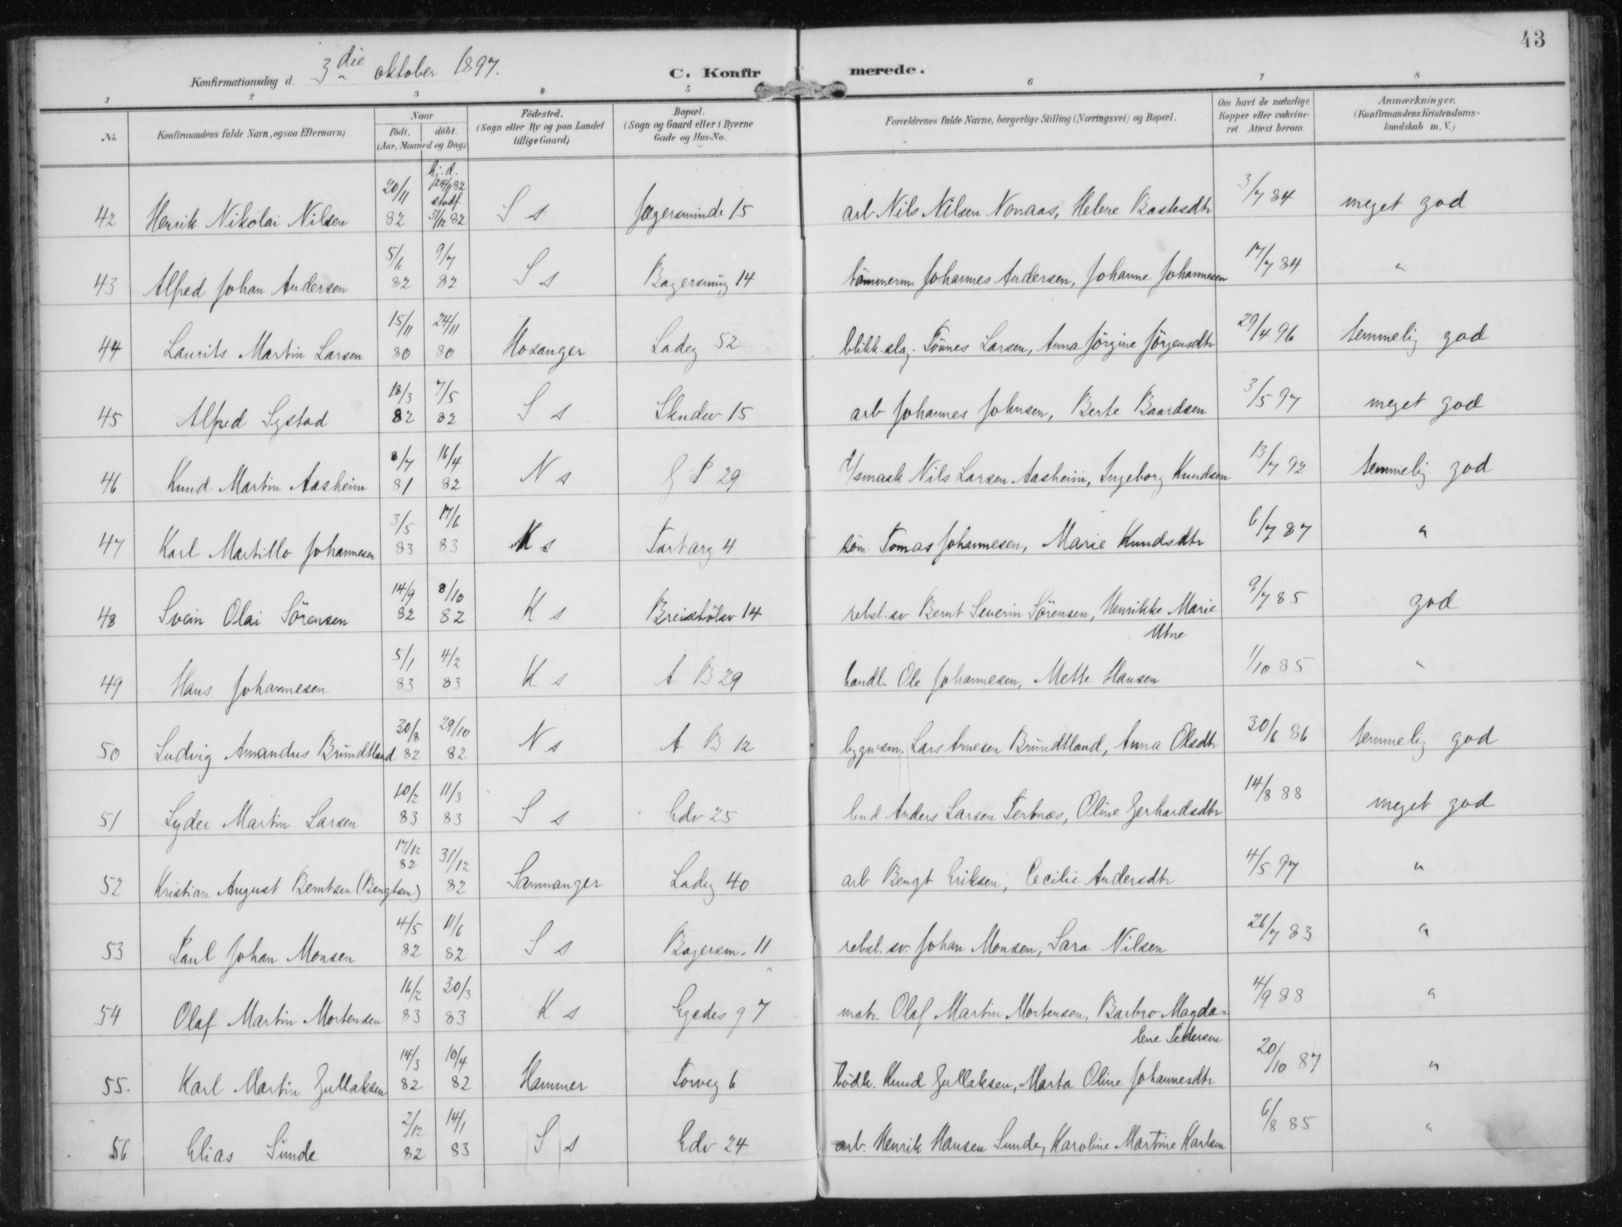 43
Konfirmationsdag d. 3die oktober 1897.
C. Konfirmerede.
1 2 3 4 5 6 7 8
No. Konfirmandens fulde Navn, ogsaa Efternavn) Naar födt. döbt. (Aar, Maaned og Dag) Födested. (Sogn eller By og paa Landet tillige Gaard) Bopæl. (Sogn og Gaard eller i Byerne Gade og Hus-No. Forældrenes fulde Navne, borgerlige Stilling (Næringsvei) og Bopæl. Om havt de naturlige Kopper eller vakcineret Attest herom. Anmærkninger. (Konfirmandens Kristendomskundskab m. V.)
42 Henrik Nikolai Nilsen 20/11 82 hj. d. 24/11 82 stadf. 31/12 82 S s Jægersminde 15 arb Nils Nilsen Nonaas, Helene Bastesdtr 3/7 84 meget god
43 Alfred Johan Andersen 5/6 82 9/7 82 S s Bagersmug 14 tömmerm Johannes Andersen, Johanne Johannesen 17/7 84 "
44 Laurits Martin Larsen 15/11 80 24/11 80 Hosanger Ladeg 52 blikkslag. Tönnes Larsen, Anna Jörgine Jörgensdtr 29/4 96 temmelig god
45 Alfred Systad 18/3 82 7/5 82 S s Skudev 15 arb Johannes Johnsen, Berte Baardsen 3/5 97 meget god
46 Knud Martin Aasheim 8/7 81 16/4 82 N s G P 29 Nils Larsen Aasheim, Ingeborg Knudsen 13/7 92 temmelig god
47 Karl Martillo Johannesen 3/5 83 17/6 83 K s Tartarg 4 töm Tomas Johannesen, Marie Knudsdtr 6/7 87 "
48 Svein Olai Sörensen 14/9 82 8/10 82 K s Breistölsv 14 rebsl.sv Bernt Severin Sörensen, Henrikke Marie Utne 9/7 85 god
49 Hans Johannesen 5/1 83 4/2 83 K s A B 29 handl. Ole Johannesen, Mette Hansen 1/10 85 "
50 Ludvig Amandus Brundtland 30/8 82 29/10 82 N s A B 12 bygn sm. Lars Arnesen Brundtland, Anna Olsdtr 30/6 86 temmelig god
51 Lyder Martin Larsen 10/2 83 11/3 83 S s Edv 25 bud Anders Larsen Tertnæs, Oline Gerhardsdtr 14/8 88 meget god
52 Kristian August Berntsen (Bengtsen) 17/12 82 31/12 82 Samnanger Ladeg 40 arb Bengt Eriksen, Cecilie Andersdtr 4/5 97 "
53 Paul Johan Monsen 4/5 82 11/6 82 S s Bagersm. 11 rebsl.sv. Johan Monsen, Sara Nilsen 26/7 83 "
54 Olaf Martin Mortensen 16/2 83 30/3 83 K s Egedes g 7 matr. Olaf Martin Mortensen, Barbro Magdalene Pedersen 4/9 88 "
55. Karl Martin Gullaksen 14/3 82 10/4 82 Hammer Torveg 6 bödk. Knud Gullaksen, Marta Oline Johannesdtr 20/10 87 "
56 Elias Sunde 2/12 82 14/1 83 S s Edv 24 arb. Henrik Hansen Sunde, Karoline Martine Karlsen 6/8 85 "